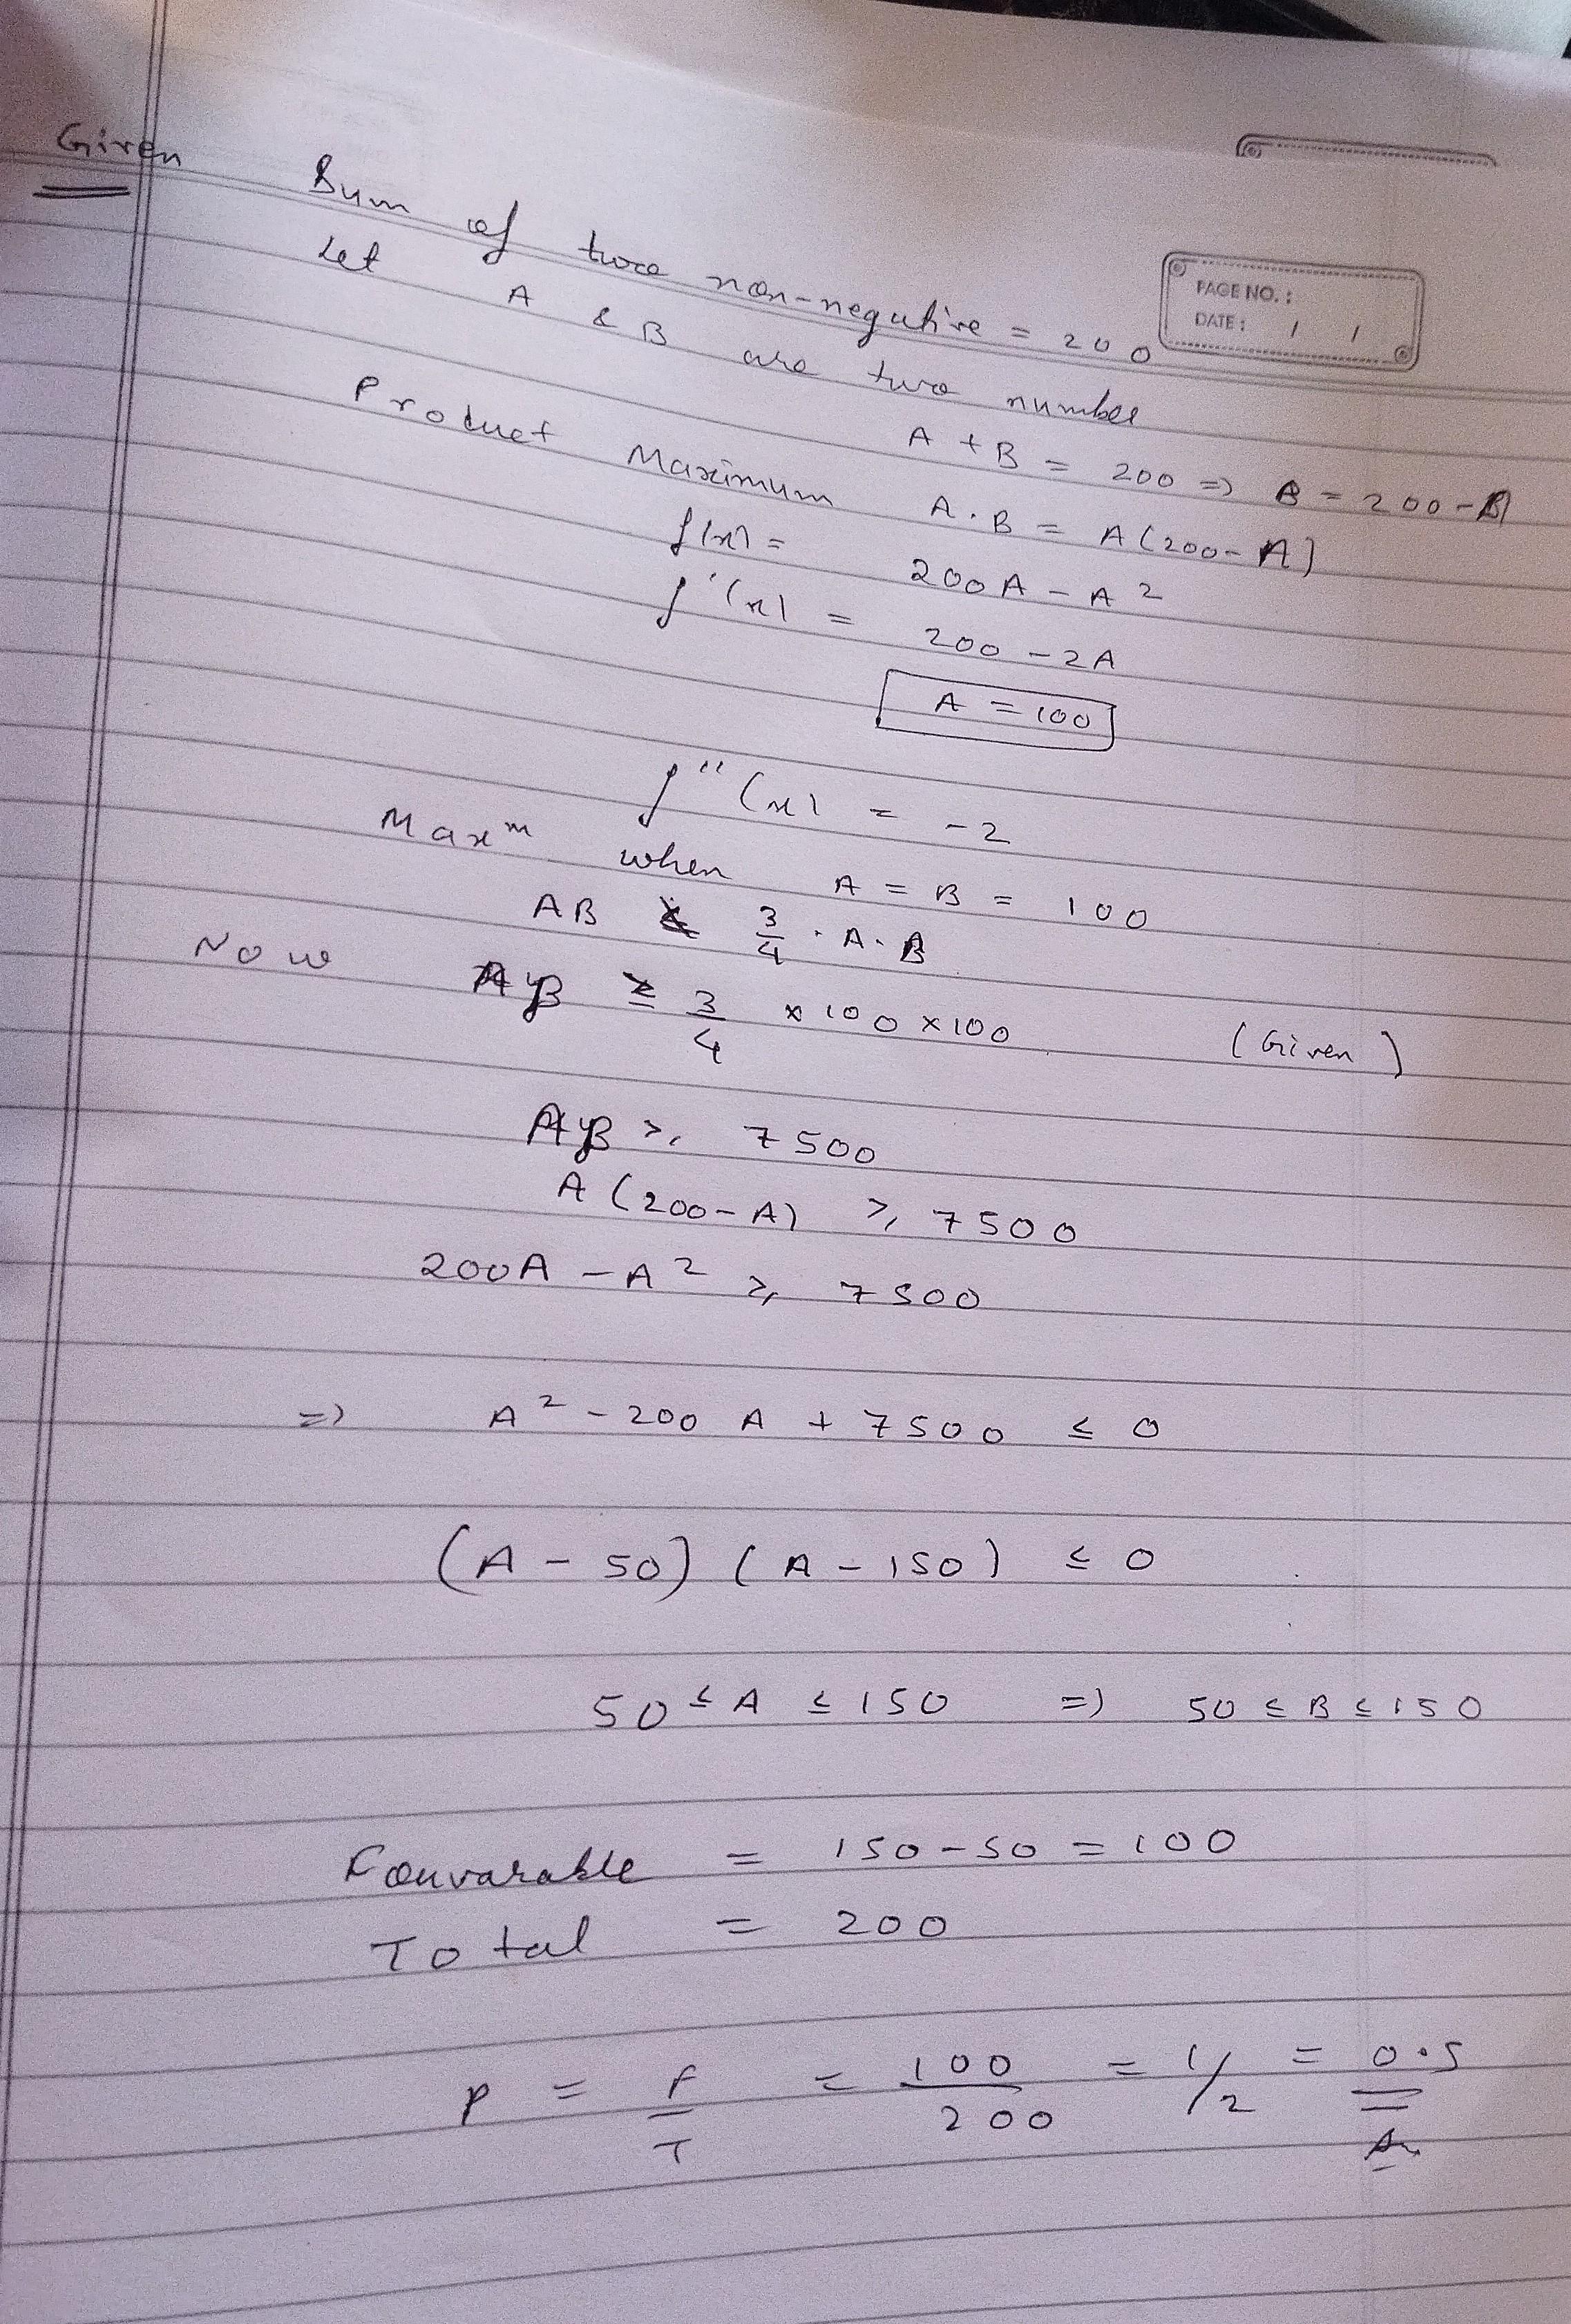 Given
Sum of two non-negative = 200
PAGE NO. :
DATE : / /
Let A & B are two number
A + B = 200 => B = 200 - A
Product Maximum A . B = A (200 - A)
f(x) = 200A - A²
f'(x) = 200 - 2A
A = 100
f''(x) = -2
Maxᵐ when A = B = 100
AB 3/4 . A . B
Now AB ≥ 3/4 x 100 x 100 (Given)
AB ≥ 7500
A (200 - A) ≥ 7500
200A - A² ≥ 7500
=> A² - 200 A + 7500 ≤ 0
(A - 50) (A - 150) ≤ 0
50 ≤ A ≤ 150 => 50 ≤ B ≤ 150
Fouvarable = 150 - 50 = 100
Total = 200
P = F/T = 100/200 = 1/2 = 0.5
An